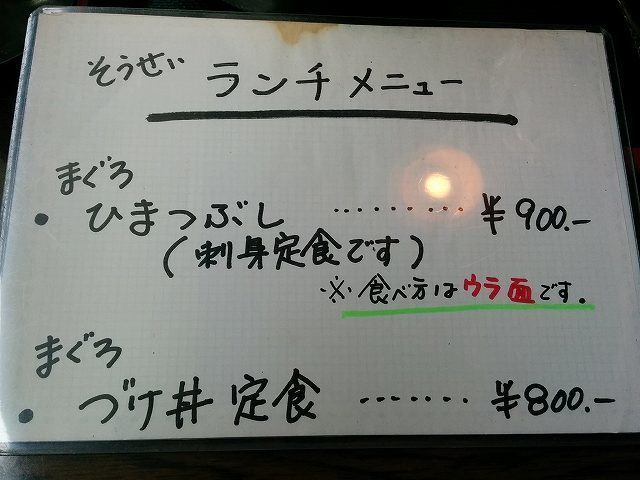 そうせい ランチメニュー
まぐろ
・ひまつぶし ‥‥‥‥ ¥900.-
(刺身定食です)
※食べ方はウラ面です。
まぐろ
・づけ丼定食 ‥‥‥ ¥800.-